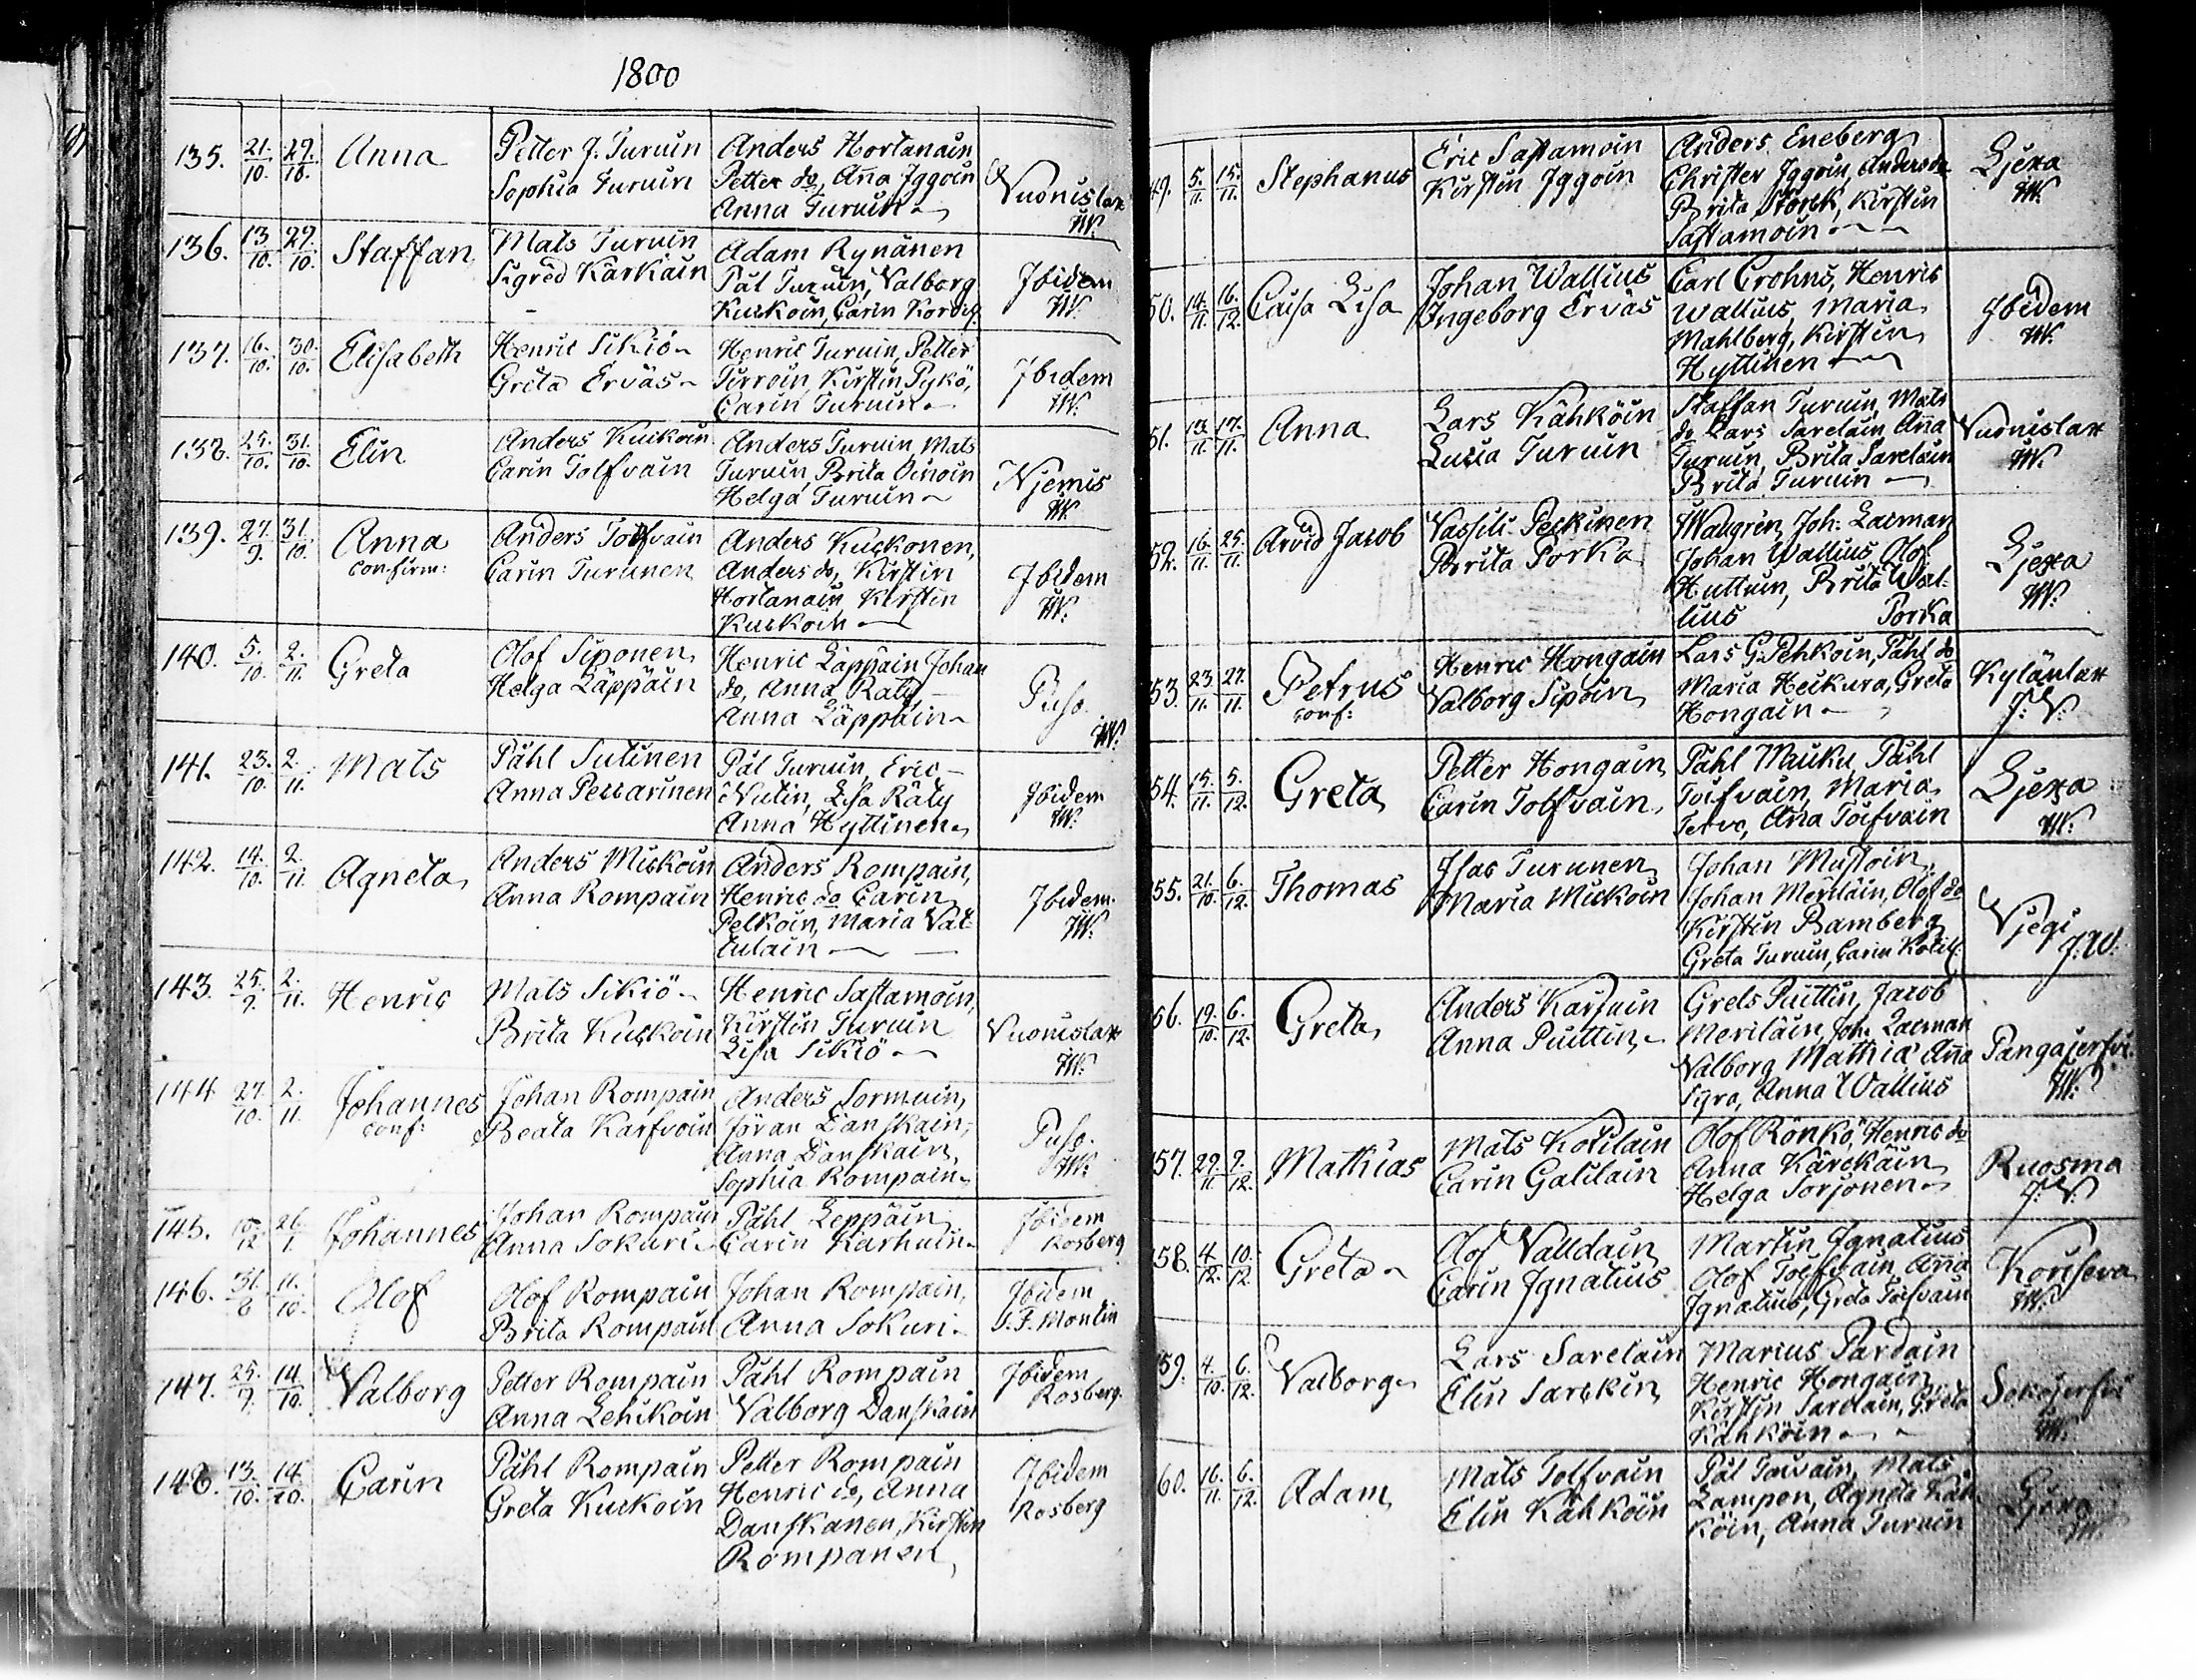 1800
135. 21./10. 29./10. Anna
Petter J. Turuin
Sophia Turuin
Anders Hortanain
Petter do, Aña Iggoin
Anna Turuin
Vuonislax
JW.
136. 13./10. 29./10. Staffan
Mats Turuin
Sigred Kärkäin
Adam Rynänen
Pål Turuin, Valborg
Kuckoin, Carin
Ibidem
JW.
137. 16./10. 30./10. Elisabeth
Henric Sikiö
Greta Erväs
Henric Turuin, Petter
Turroin, Kirstin Pykö,
Carin Turuin
Ibidem
JW.
138. 31./10. Elin
Anders Kuckoin
Carin Tolfvain
Anders Turuin, Mats
Turuin, Brita Oinoin
Helga Turuin
Njemis
JW.
139. 27./9. 31./10. Anna
confirm:
Anders Tolfvain
Carin Turunen
Anders Kuckonen,
Anders do, Kirstin
Hortanain, Kirstin
Kuckoin
Ibidem
JW.
140. 5./10. 2./11. Greta
Olof Siponen
Helga Läppäin
Henric Läppäin, Johan
do, Anna Räty,
Anna Läppäin
Puso.
JW.
141. 23./10. 2./11. Mats
Påhl Sutinen
Anna Peccarinen
Pål Turuin, Eric
Nutin, Lisa Räty
Anna Hyttinen
Ibidem
JW.
142. 14./10. 2./11. Agneta
Anders Mickoin
Anna Rompain
Anders Rompain,
Henric do, Carin
Pelkoin, Maria Vat-
tulain
Ibidem.
JW.
143. 25./9. 2./11. Henric
Mats Sikiö
Brita Kuckoin
Henric Sastamoin,
Kirstin Turuin
Lisa Sikiö
Vuonislax
JW.
144. 27./10. 2./11. Johannes
conf:
Johan Rompain
Beata Karfvoin
Anders Sormuin,
Jöran Danskain,
Anna Danskain,
Sophia Rompain
Puso.
JW.
145. 26./1. Johannes
Johan Rompain
Anna Sokuri
Påhl Leppäin
Carin Karhuin
Ibidem
Rosberg
146. 31./8 11./10. Olof
Olof Rompain
Brita Rompain
Johan Rompain,
Anna Sokuri
Ibidem
Montin
147. 25./9. 14/10. Valborg
Petter Rompain
Anna Lehikoin
Påhl Rompain
Valborg Danskain
Ibidem
Rosberg.
148. 13./10. 14./10. Carin
Påhl Rompain
Greta Kuckoin
Petter Rompain
Henric do, Anna
Danskanen, Kirstin
Rompanen
Ibidem
Rosberg
49. 5./11. 15./11. Stephanus
Eric Sastamoin
Kirstin Iggoin
Anders Eneberg
Christer Iggoin, Anders do
Brita Störck, Kirstin
Sastamoin
Ljexa
JW.
50. 14./11. 16./12. Caisa Lisa
Johan Wallius
Ingeborg Erväs
Carl Crohns, Henric
Wallius, Maria
Mahlberg, Kirstin
Hyttinen
Ibidem
JW.
51. 17./11. Anna
Lars Kähköin
Lucia Turuin
Staffan Turuin, Mats
do Lars Sarelain, Aña
Turuin, Brita Sarelain
Brita Turuin
Vuonislax
JW.
52. 16./11. 25./11. Arvid Jacob
Vassili Peckinen
Brita Porka
Wahgren, Joh: Lacman
Johan Wallius, Olof
Huttuin, Brita Wal-
lius Porka
Ljexa
JW:
53. 23./11. 27./11. Petrus
conf:
Henric Hongain
Valborg Sipoin
Lars G. Pehkoin, Påhl do
Maria Heikura, Greta
Hongain
Kyläntax
J: V:
54. 15./11. 5./12. Greta
Petter Hongain
Carin Tolfvain
Påhl Mauku, Påhl
Toifvain, Maria
Terve, Aña Toifvain
Ljexa
JW.
55. 21./10. 6./12. Thomas
Isac Turunen
Maria Mickoin
Johan Mustoin,
Johan Meriläin, Olof do
Kirstin Bamberg
Greta Turuin, Carin
Vjegi
J:W.
56. 19./10. 6./12. Greta
Anders Karfuin
Anna Puittin
Grels Puittin, Jacob
Meriläin, Joh: Lacman
Valborg Mathia Aña
Syra, Anna Wallius
Pangajerfvi
JW.
57. 29./11. 9./12. Mathias
Mats Kotilain
Carin Galilain
Olof Rönkö, Henric do
Anna Kärckäin
Helga Sorjonen
Ruosma
J: V:
58. 4./12. 10./12. Greta
Olof Valldain
Carin Ignatius
Martin Ignatius
Olof Toifvain, Aña
Ignatius, Greta Toifvain
Koriseva
JW.
59. 4./10. 6./12. Valborg
Lars Sarelain
Elin Sarckin
Marius Pardain
Henric Hongain
Kirstin Sarelain, Greta
Kähköin
Sokojerfvi
JW.
60. 16./11. 6./12. Adam
Mats Tolfvain
Elin Kähköin
Pål Toivain, Mats
Lampen, Agneta Käh-
köin, Anna Turuin
Ljexa
JW.